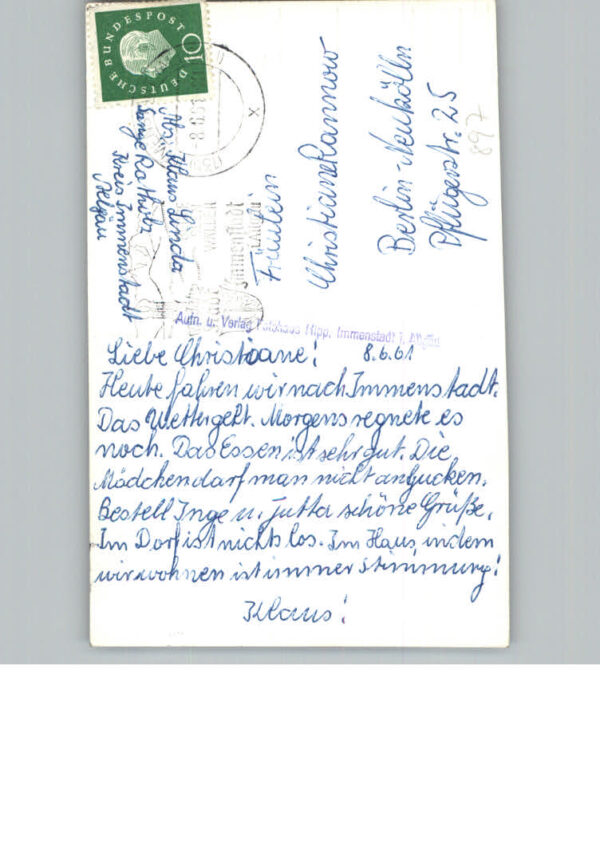 DEUTSCHE BUNDESPOST
10
-8.6.61
Abs. Klaus Linda
Kreis Immenstadt
Allgäu
Immenstadt
Fräulein
Christiane Rannow
Berlin-Neukölln
Pflügerstr. 25
897
Aufn. u. Verlag Fotohaus Hipp, Immenstadt i. Allgäu
Liebe Christiane! 8.6.61
Heute fahren wir nach Immenstadt.
Das Wetter geht. Morgens regnete es
noch. Das Essen ist sehr gut. Die
Mädchen darf man nicht angucken.
Bestell Inge u. Jutta schöne Grüße.
Im Dorf ist nichts los. Im Haus, in dem
wir wohnen ist immer Stimmung!
Klaus!